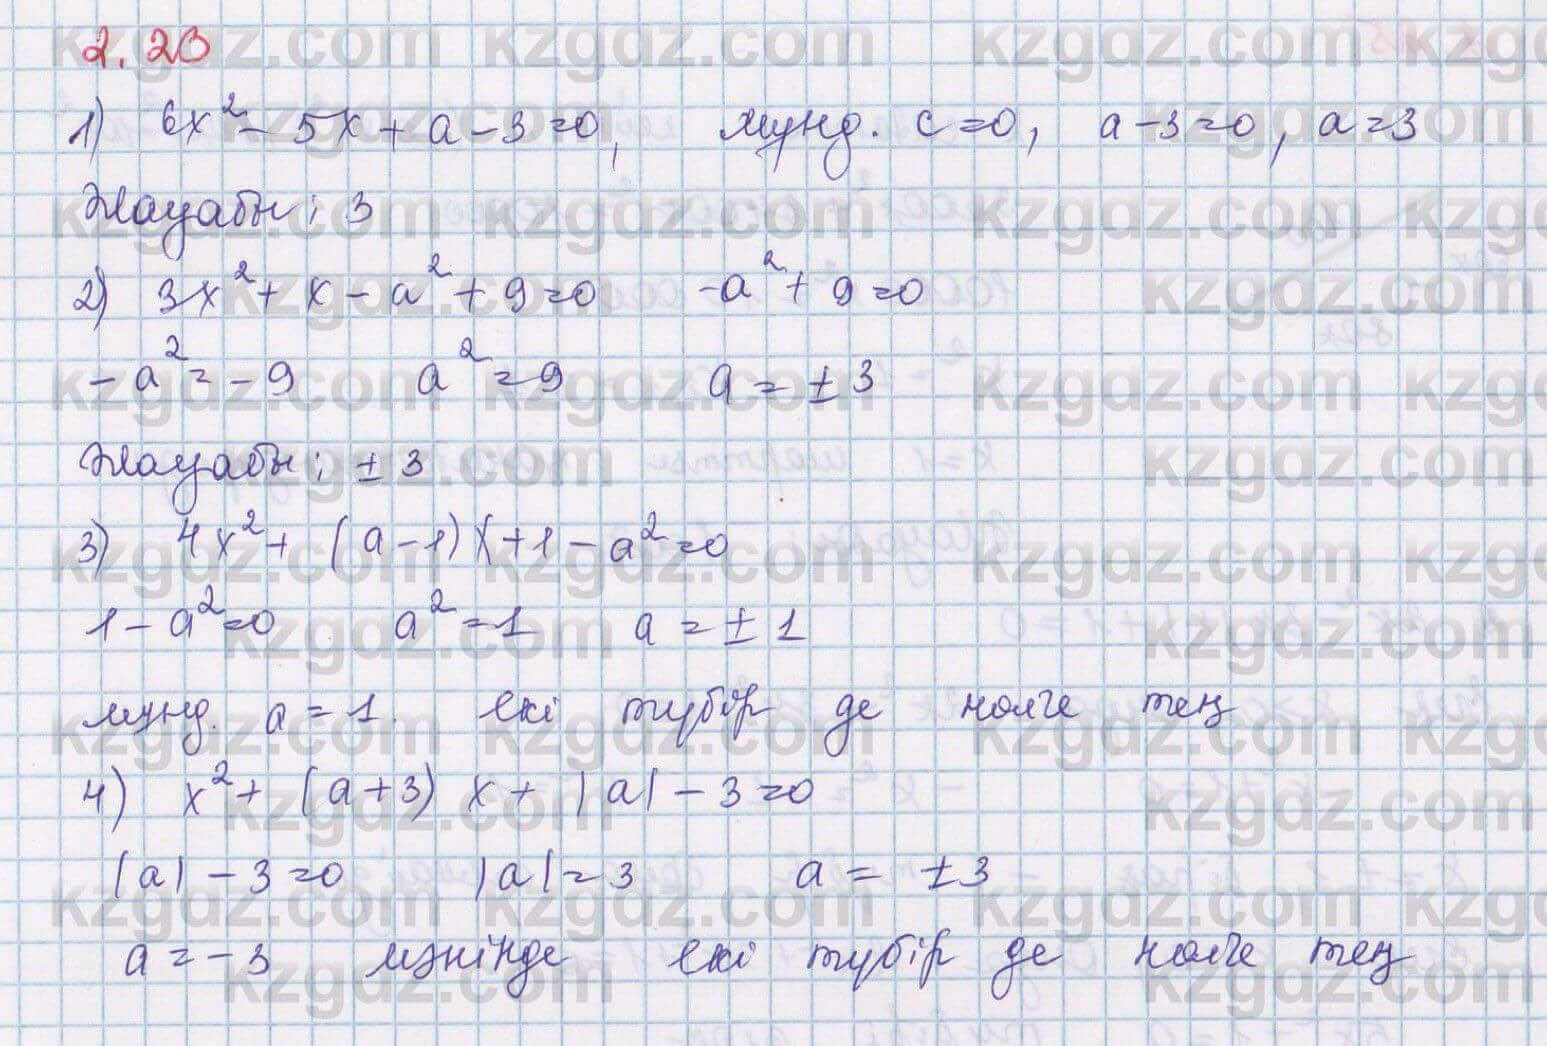 2.23
1) 6x² - 5x + a - 3 = 0, мұнд. c = 0, a - 3 = 0, a = 3
Жауабы: 3
2) 3x² + x - a² + 9 = 0 -a² + 9 = 0
-a² = -9 a² = 9 a = ±3
Жауабы: ±3
3) 4x² + (a - 1)x + 1 - a² = 0
1 - a² = 0 a² = 1 a = ±1
мұнд. a = 1. екі түбір де нөлге тең
4) x² + (a + 3) x + |a| - 3 = 0
|a| - 3 = 0 |a| = 3 a = ±3
a = -3 мәнінде екі түбір де нөлге тең